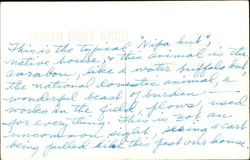 This is the typical "Nipa hut",
native house, & this animal is the
carabou, like a water buffalo but
the national domestic animal, a
wonderful beast of burden —
works in the field, plows, used
for everything. This is not an
uncommon sight, seeing a cart
being pulled like this past our house